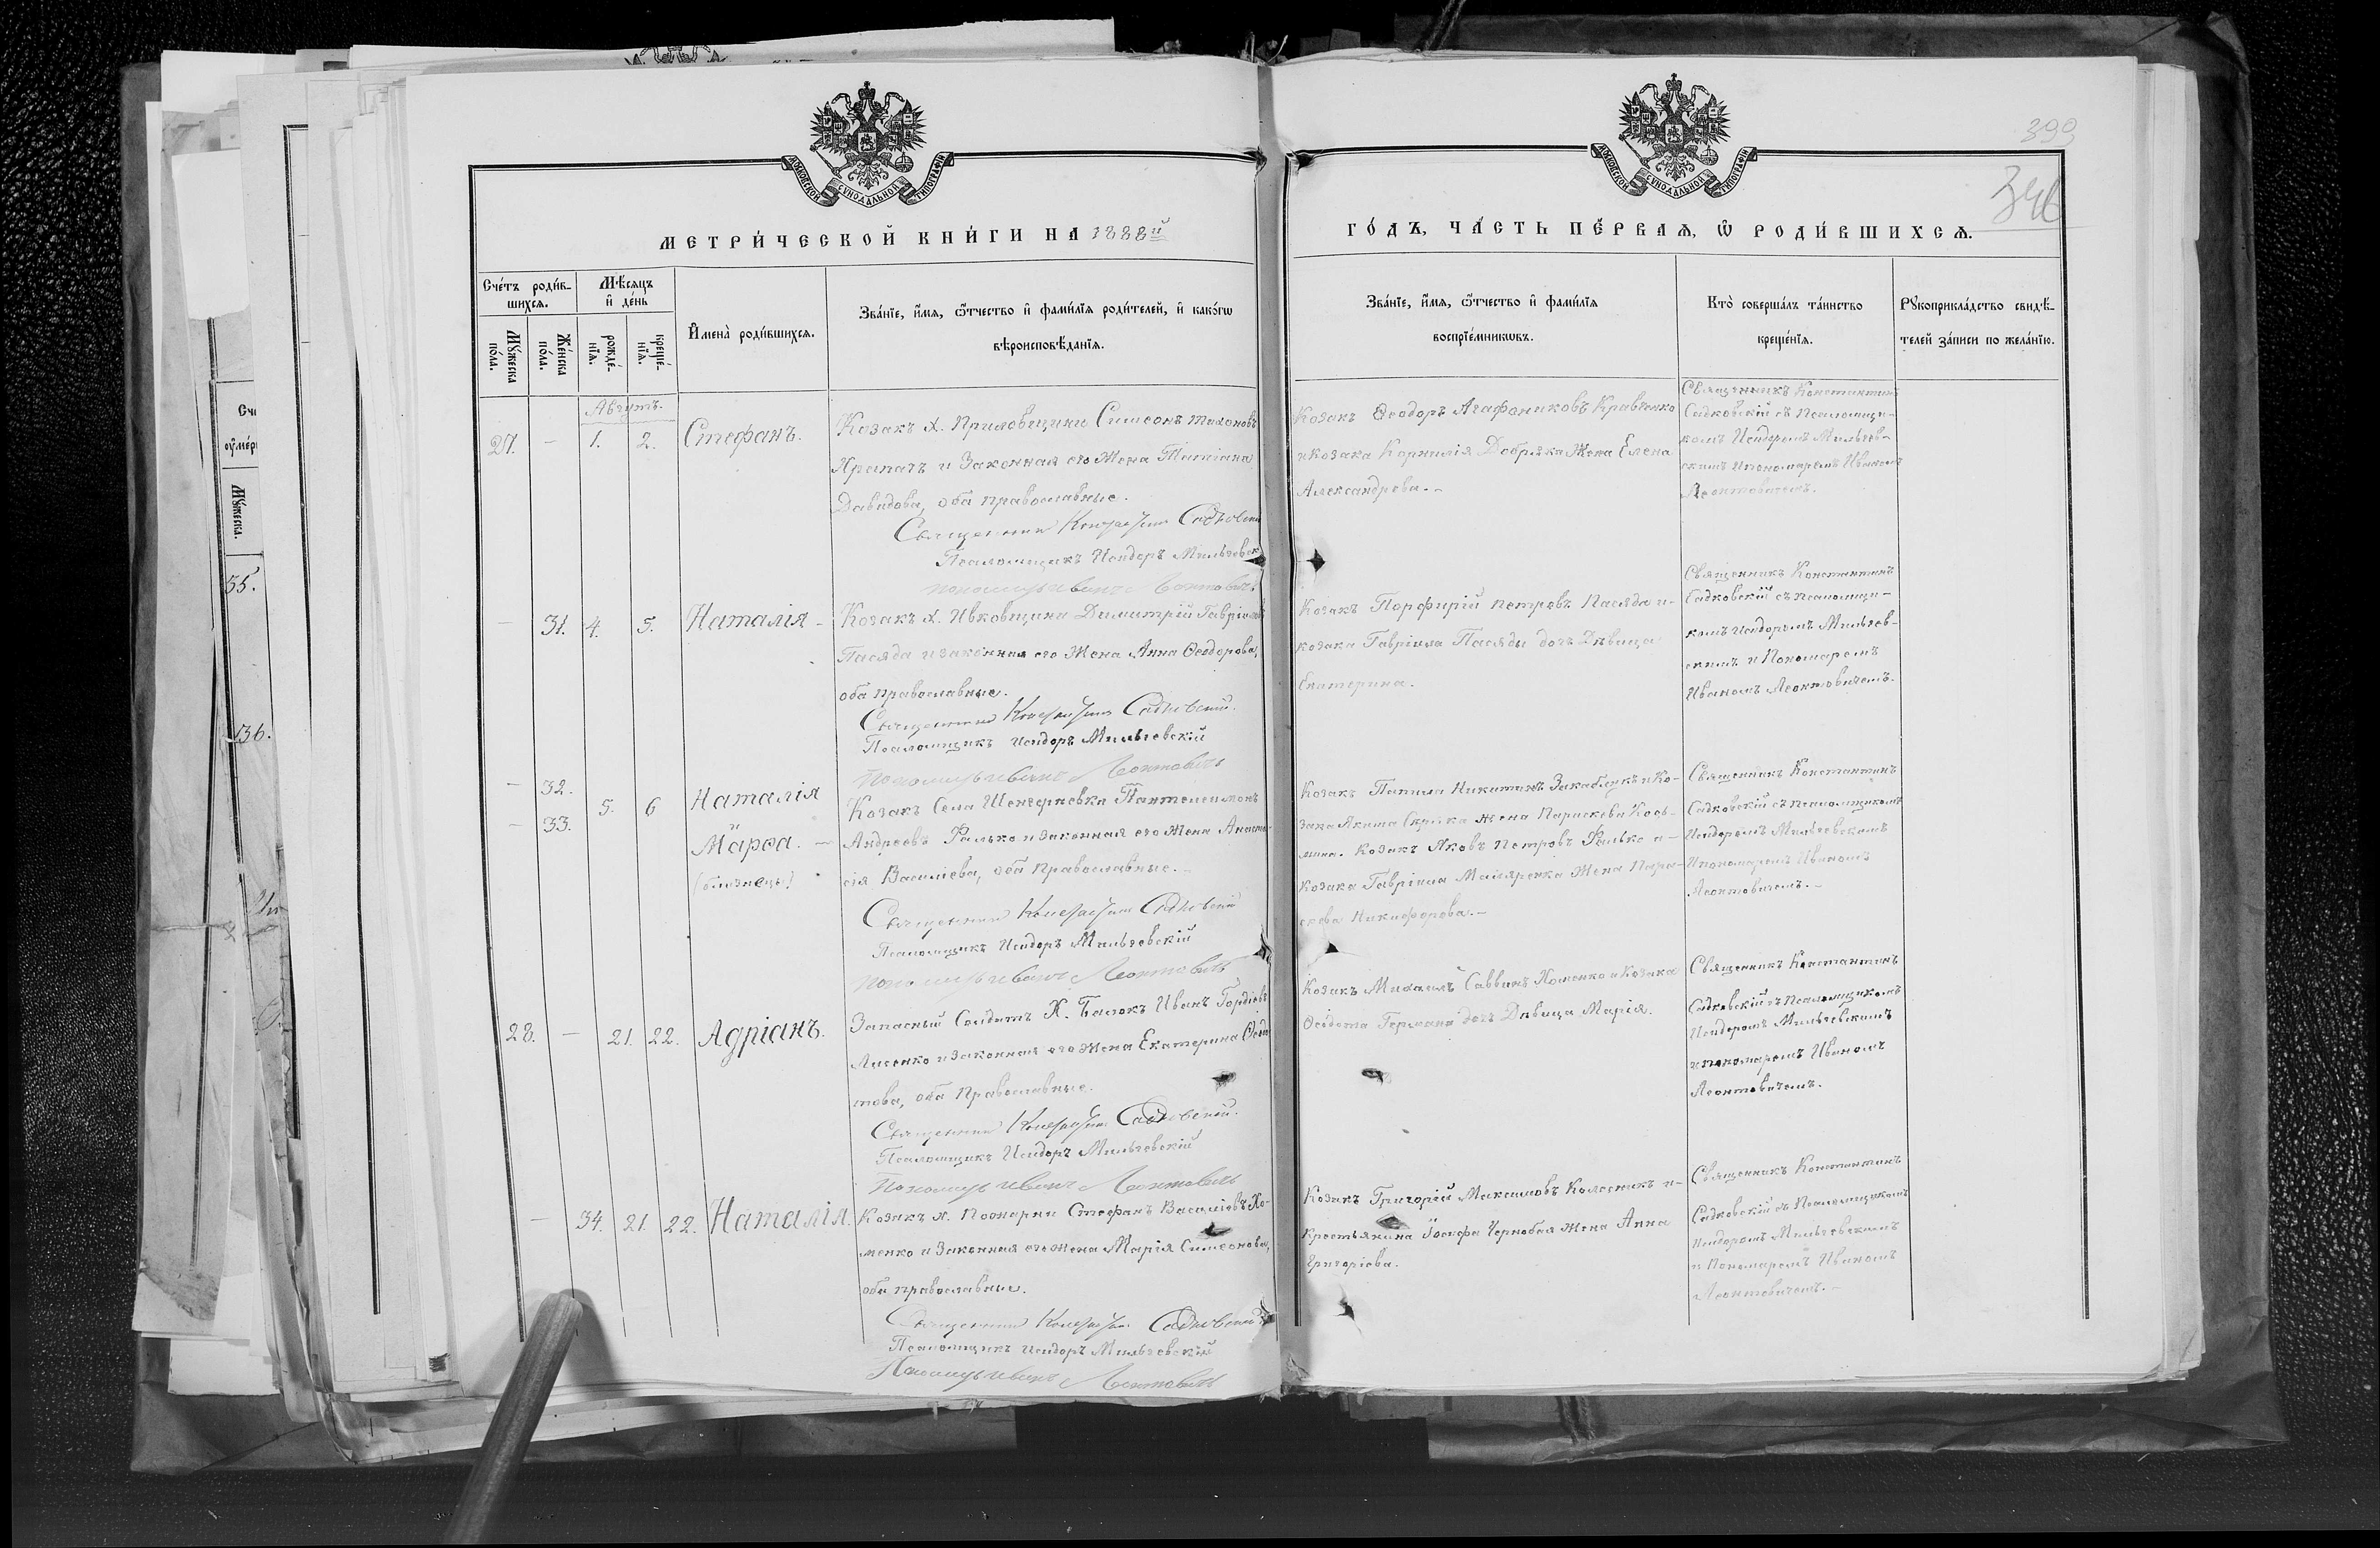 399
346
МОСКОВСКОЙ СѴНОДАЛЬНОЙ ТИПОГРАФІИ
МОСКОВСКОЙ СѴНОДАЛЬНОЙ ТИПОГРАФІИ
МЕТРИ́ЧЕСКОЙ КНИ́ГИ НА 1888й
ГО́ДЪ, ЧА́СТЬ ПЕ́РВАѦ, Ѿ РОДИ́ВШИХСѦ.
Сче́тъ роди́в-
шихся.
Мѣ́сяцъ
и҆ де́нь
Мꙋ́жеска
по́ла.
Же́нска
по́ла.
рожде́-
нїя.
креще́-
нїя.
И҆мена̀ роди́вшихся.
Зва́нїе, и҆́мя, ѻ҆́тчество и҆ фами́лїя роди́телей, и҆ како́гѡ
вѣроисповѣ́данїя.
Зва́нїе, и҆́мя, ѻ҆́тчество и҆ фами́лїя
воспрїе́мникѡвъ.
Кто̀ соверша́лъ та́инство
креще́нїя.
Рꙋкоприкла́дство свидѣ́-
телей за́писи по жела́нїю.
Августъ.
27. — 1. 2. Стефанъ.
Козакъ х. Приловщини Симеонъ Тихоновъ
Храпачъ и Законная его Жена Татіана
Давидова, оба православные.
Священник Константин Садковский
Псаломщикъ Исидоръ Мильчевск
пономарь Иванъ Леонтовичъ
Козакъ Ѳеодоръ Агафониковъ Кравченко
и козака Корнилія Добряка Жена Елена
Александрова.
Священникъ Константинъ
Садковскій съ Псаломщи-
комъ Исидоромъ Мильчев-
скимъ и пономаремъ Иваномъ
Леонтовичемъ.
— 31. 4. 5. Наталія
Козакъ х. Ивковщини Димитрій Гавріиловъ
Пасяда и законная его Жена Анна Ѳеодорова,
оба православные.
Священник Константин Садковский.
Псаломщикъ Исидоръ Мильчевскій
Пономарь Иванъ Леонтовичъ
Козакъ Порфирій Петровъ Пасяда и
козака Гавріила Пасяды дочь Дѣвица
Екатерина.
Священникъ Константинъ
Садковскій съ псаломщи-
комъ Исидоромъ Мильчев-
скимъ и Пономаремъ
Иваномъ Леонтовичемъ.
— 32. 5. 6 Наталія
— 33. Марѳа. —
(близнецы)
Козакъ Села Шенгереевка Пантелеимонъ
Андреевъ Фалько и законная его Жена Анаста-
сія Василіева, оба Православные.
Священник Константин Садковский
Псаломщикъ Исидоръ Мильчевскій
пономарь Иванъ Леонтовичъ
Козакъ Никитинъ Закаблукъ и Ко-
зака Жена Параскева Козь-
мина. Козакъ Яковъ Петровъ Фалько и
козака Гавріила Жена Пара-
скева Никифорова.
Священникъ Константинъ
Садковскій съ псаломщикомъ
Исидоромъ Мильчевскимъ
и пономаремъ Иваномъ
Леонтовичемъ.
28. — 21. 22. Адріанъ.
Запасный Солдатъ Х. Балокъ Иванъ Гордіевъ
Лисенко и законная его Жена Екатерина Ѳеодо-
това, оба Православные.
Священник Константин Садковский.
Псаломщикъ Исидоръ Мильчевскій
Пономарь Иванъ Леонтовичъ
Козакъ Михаилъ Саввинъ Хоменко и Козака
Ѳеодота Германа дочь Дѣвица Марія.
Священникъ Константинъ
Садковскій съ Псаломщикомъ
Исидоромъ Мильчевскимъ
и пономаремъ Иваномъ
Леонтовичемъ.
— 34. 21. 22. Наталія.
Козакъ х. Стефанъ Василіевъ Хо-
менко и Законная его жена Марія Симеонова,
оба православные.
Священник Константин Садковский
Псаломщикъ Исидоръ Мильчевскій
Пономарь Иванъ Леонтовичъ
Козакъ Григорій Максимовъ и
крестьянина Іосифа Чернобая жена Анна
Григоріева.
Священникъ Константинъ
Садковскій съ Псаломщикомъ
Исидоромъ Мильчевскимъ
и Пономаремъ Иваномъ
Леонтовичемъ.
35.
136.